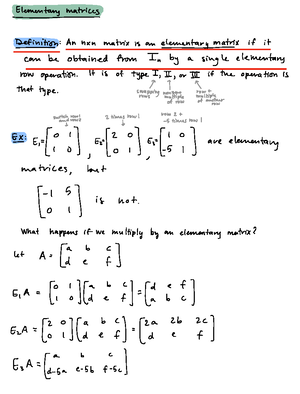 Elementary matrices
Definition: An n×n matrix is an elementary matrix if it
can be obtained from Iₙ by a single elementary
row operation. It is of type I, II, or III if the operation is
that type.
swapping rows
nonzero multiple
row + multiply of another row
switch row 1 and row 2
2 times row 1
row 2 + -5 times row 1
Ex: E₁=[0 1; 1 0], E₂=[2 0; 0 1], E₃=[1 0; -5 1] are elementary
matrices, but
[-1 5; 0 1] is not.
What happens if we multiply by an elementary matrix?
let A = [a b c; d e f]
E₁A = [0 1; 1 0][a b c; d e f] = [d e f; a b c]
E₂A = [2 0; 0 1][a b c; d e f] = [2a 2b 2c; d e f]
E₃A = [a b c; d-5a e-5b f-5c]